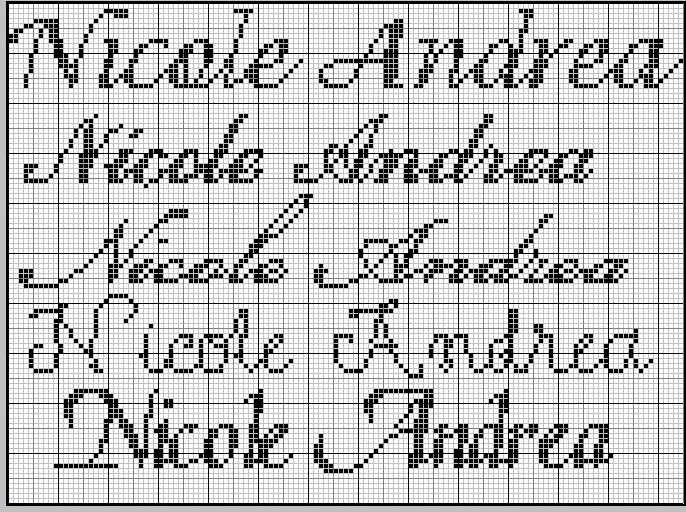 Nicole Andrea
Nicole Andrea
Nicole Andrea
Nicole Andrea
Nicole Andrea